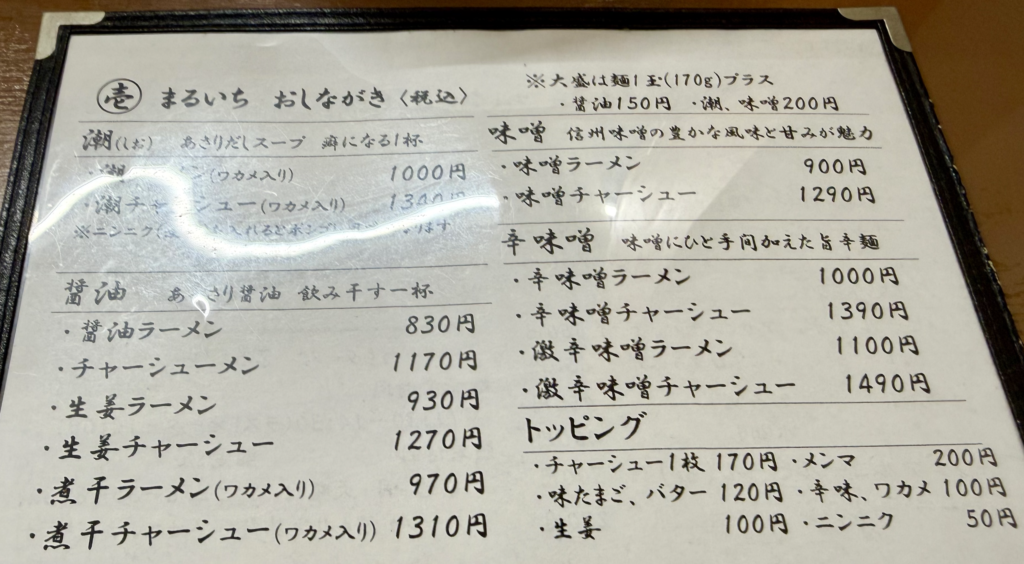 壱 まるいち おしながき〈税込〉
潮(しお) あさりだしスープ 癖になる1杯
・潮 ン(ワカメ入り) 1000円
・潮チャーシュー(ワカメ入り) 円
※ニンニク( 入れるとボンゴ ます
醤油 あっさり醤油 飲み干す一杯
・醤油ラーメン 830円
・チャーシューメン 1170円
・生姜ラーメン 930円
・生姜チャーシュー 1270円
・煮干ラーメン(ワカメ入り) 970円
・煮干チャーシュー(ワカメ入り) 1310円
※大盛は麺1玉(170g)プラス
・醤油150円 ・潮、味噌200円
味噌 信州味噌の豊かな風味と甘みが魅力
・味噌ラーメン 900円
・味噌チャーシュー 1290円
辛味噌 味噌にひと手間加えた旨辛麺
・辛味噌ラーメン 1000円
・辛味噌チャーシュー 1390円
・激辛味噌ラーメン 1100円
・激辛味噌チャーシュー 1490円
トッピング
・チャーシュー1枚 170円 ・メンマ 200円
・味たまご、バター 120円 ・辛味、ワカメ 100円
・生姜 100円 ・ニンニク 50円